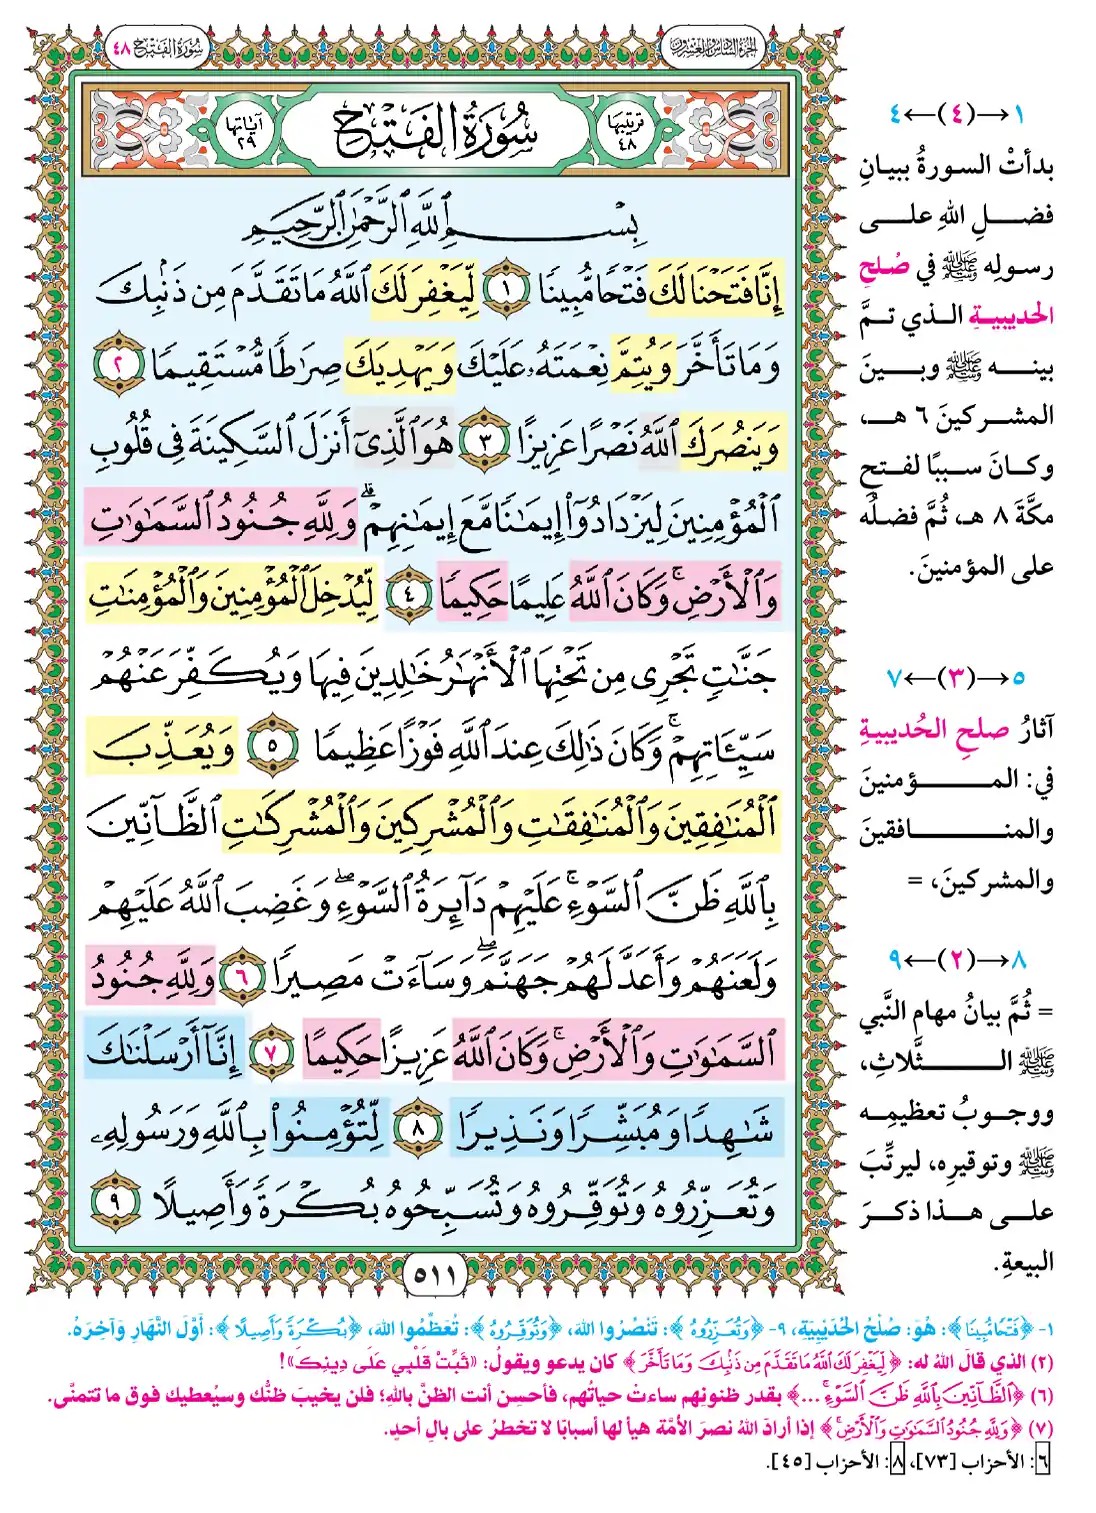 الجزء السادس والعشرون
سورة الفتح ٤٨
ترتيبها ٤٨
سُورَةُ الفَتْحِ
آياتها ٢٩
بِسْمِ ٱللَّهِ ٱلرَّحْمَٰنِ ٱلرَّحِيمِ
إِنَّا فَتَحْنَا لَكَ فَتْحًا مُّبِينًا ١ لِّيَغْفِرَ لَكَ ٱللَّهُ مَا تَقَدَّمَ مِن ذَنۢبِكَ
وَمَا تَأَخَّرَ وَيُتِمَّ نِعْمَتَهُۥ عَلَيْكَ وَيَهْدِيَكَ صِرَٰطًا مُّسْتَقِيمًا ٢
وَيَنصُرَكَ ٱللَّهُ نَصْرًا عَزِيزًا ٣ هُوَ ٱلَّذِىٓ أَنزَلَ ٱلسَّكِينَةَ فِى قُلُوبِ
ٱلْمُؤْمِنِينَ لِيَزْدَادُوٓا۟ إِيمَٰنًا مَّعَ إِيمَٰنِهِمْ ۗ وَلِلَّهِ جُنُودُ ٱلسَّمَٰوَٰتِ
وَٱلْأَرْضِ ۚ وَكَانَ ٱللَّهُ عَلِيمًا حَكِيمًا ٤ لِّيُدْخِلَ ٱلْمُؤْمِنِينَ وَٱلْمُؤْمِنَٰتِ
جَنَّٰتٍ تَجْرِى مِن تَحْتِهَا ٱلْأَنْهَٰرُ خَٰلِدِينَ فِيهَا وَيُكَفِّرَ عَنْهُمْ
سَيِّـَٔاتِهِمْ ۚ وَكَانَ ذَٰلِكَ عِندَ ٱللَّهِ فَوْزًا عَظِيمًا ٥ وَيُعَذِّبَ
ٱلْمُنَٰفِقِينَ وَٱلْمُنَٰفِقَٰتِ وَٱلْمُشْرِكِينَ وَٱلْمُشْرِكَٰتِ ٱلظَّآنِّينَ
بِٱللَّهِ ظَنَّ ٱلسَّوْءِ ۚ عَلَيْهِمْ دَآئِرَةُ ٱلسَّوْءِ ۖ وَغَضِبَ ٱللَّهُ عَلَيْهِمْ
وَلَعَنَهُمْ وَأَعَدَّ لَهُمْ جَهَنَّمَ ۖ وَسَآءَتْ مَصِيرًا ٦ وَلِلَّهِ جُنُودُ
ٱلسَّمَٰوَٰتِ وَٱلْأَرْضِ ۚ وَكَانَ ٱللَّهُ عَزِيزًا حَكِيمًا ٧ إِنَّآ أَرْسَلْنَٰكَ
شَٰهِدًا وَمُبَشِّرًا وَنَذِيرًا ٨ لِّتُؤْمِنُوا۟ بِٱللَّهِ وَرَسُولِهِۦ
وَتُعَزِّرُوهُ وَتُوَقِّرُوهُ وَتُسَبِّحُوهُ بُكْرَةً وَأَصِيلًا ٩
٥١١
١→(٤)←٤
بدأتْ السورةُ ببيانِ
فضلِ اللهِ على
رسولِه ﷺ في صُلحِ
الحديبيةِ الذي تمَّ
بينه ﷺ وبينَ
المشركينَ ٦ هـ،
وكانَ سببًا لفتحِ
مكَّةَ ٨ هـ، ثُمَّ فضلُه
على المؤمنينَ.
٥→(٣)←٧
آثارُ صلحِ الحُديبيةِ
في: المؤمنينَ
والمنافقينَ
والمشركينَ، =
٨→(٢)←٩
= ثُمَّ بيانُ مهامِ النَّبي
ﷺ الثَّلاثِ،
ووجوبُ تعظيمِه
ﷺ وتوقيرِه، ليرتِّبَ
على هذا ذكرَ
البيعةِ.
١- ﴿فَتْحًا مُّبِينًا﴾: هُوَ: صُلْحُ الحُدَيْبِيَةِ، ٩- ﴿وَتُعَزِّرُوهُ﴾: تَنْصُرُوا اللهَ، ﴿وَتُوَقِّرُوهُ﴾: تُعَظِّمُوا اللهَ، ﴿بُكْرَةً وَأَصِيلًا﴾: أَوَّلَ النَّهَارِ وَآخِرَهُ.
(٢) الذي قالَ اللهُ له: ﴿لِّيَغْفِرَ لَكَ ٱللَّهُ مَا تَقَدَّمَ مِن ذَنۢبِكَ وَمَا تَأَخَّرَ﴾ كان يدعو ويقولُ: «ثَبِّتْ قَلْبِي عَلَى دِينِكَ»!
(٦) ﴿ٱلظَّآنِّينَ بِٱللَّهِ ظَنَّ ٱلسَّوْءِ ۚ ...﴾ بقدر ظنونِهم ساءتْ حياتُهم، فأحسِن أنت الظنَّ باللهِ؛ فلن يخيبَ ظنُّك وسيُعطيك فوق ما تتمنَّى.
(٧) ﴿وَلِلَّهِ جُنُودُ ٱلسَّمَٰوَٰتِ وَٱلْأَرْضِ ۚ﴾ إذا أرادَ اللهُ نصرَ الأمَّة هيأ لها أسبابًا لا تخطرُ على بالِ أحدٍ.
٦: الأحزاب [٧٣]، ٨: الأحزاب [٤٥].